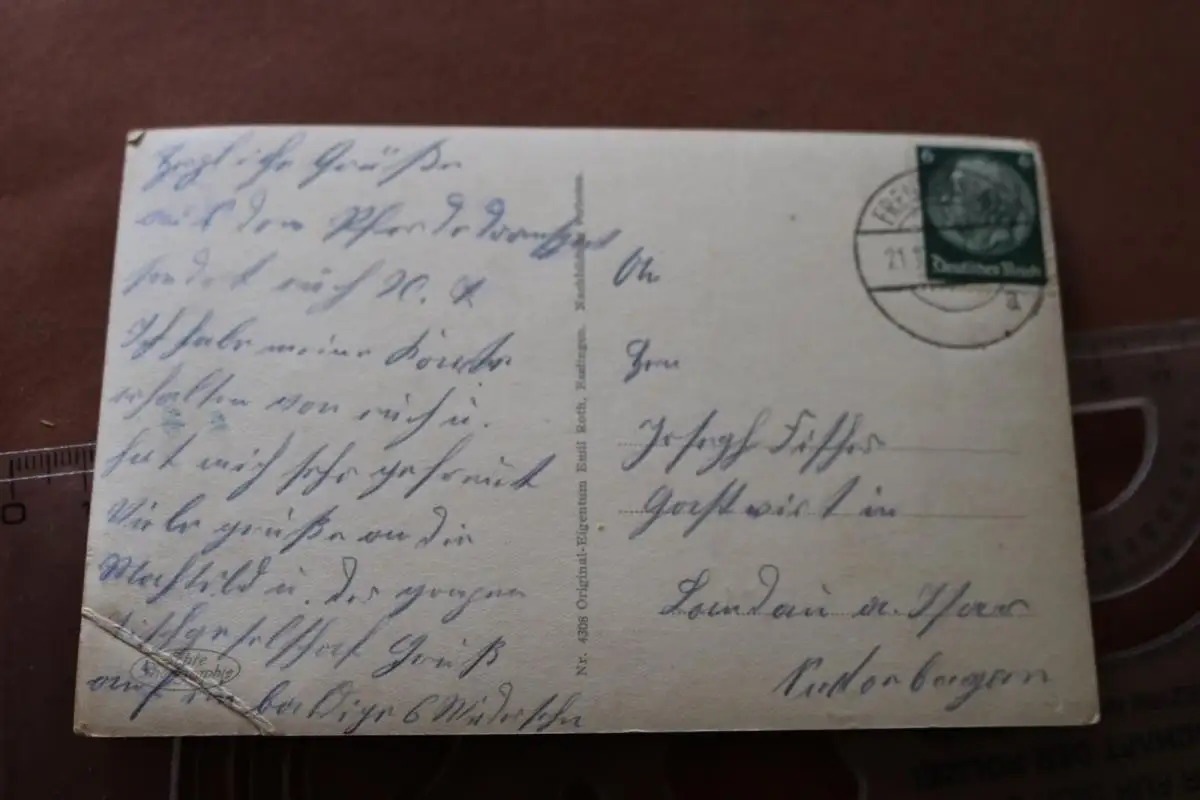 Herzliche Grüße
aus dem Pferdetransport
sendet euch X. F.
Ich habe meine Karte
erhalten von euch u.
hat mich sehr gefreut
Viele grüße an die
Mathild u. der ganzen
Tischgesellschaft Gruß
auf ein baldiges Wiedersehn
Nr. 4308 Original-Eigentum Emil Roth, Esslingen. Nachbildung verboten.
An
Herrn
Joseph Fischer
Gastwirt in
Landau a. Isar
Niederbayern
6 6
Deutsches Reich
21.1
a
Echte Photographie
0